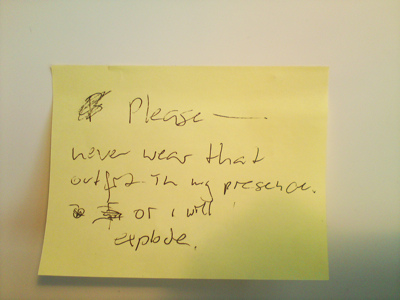 Please —.
never wear that
outfit in my presence.
or i will
explode.